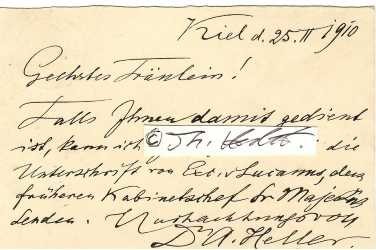 Kiel d. 25. II 1910
Geehrtes Fräulein!
Falls Ihnen damit gedient
ist, kann ich © die
Unterschrift von Exc. v Lucanus, dem
früheren Kabinetschef Sr Majestät
senden. Hochachtungsvoll
Dr A. Heller.